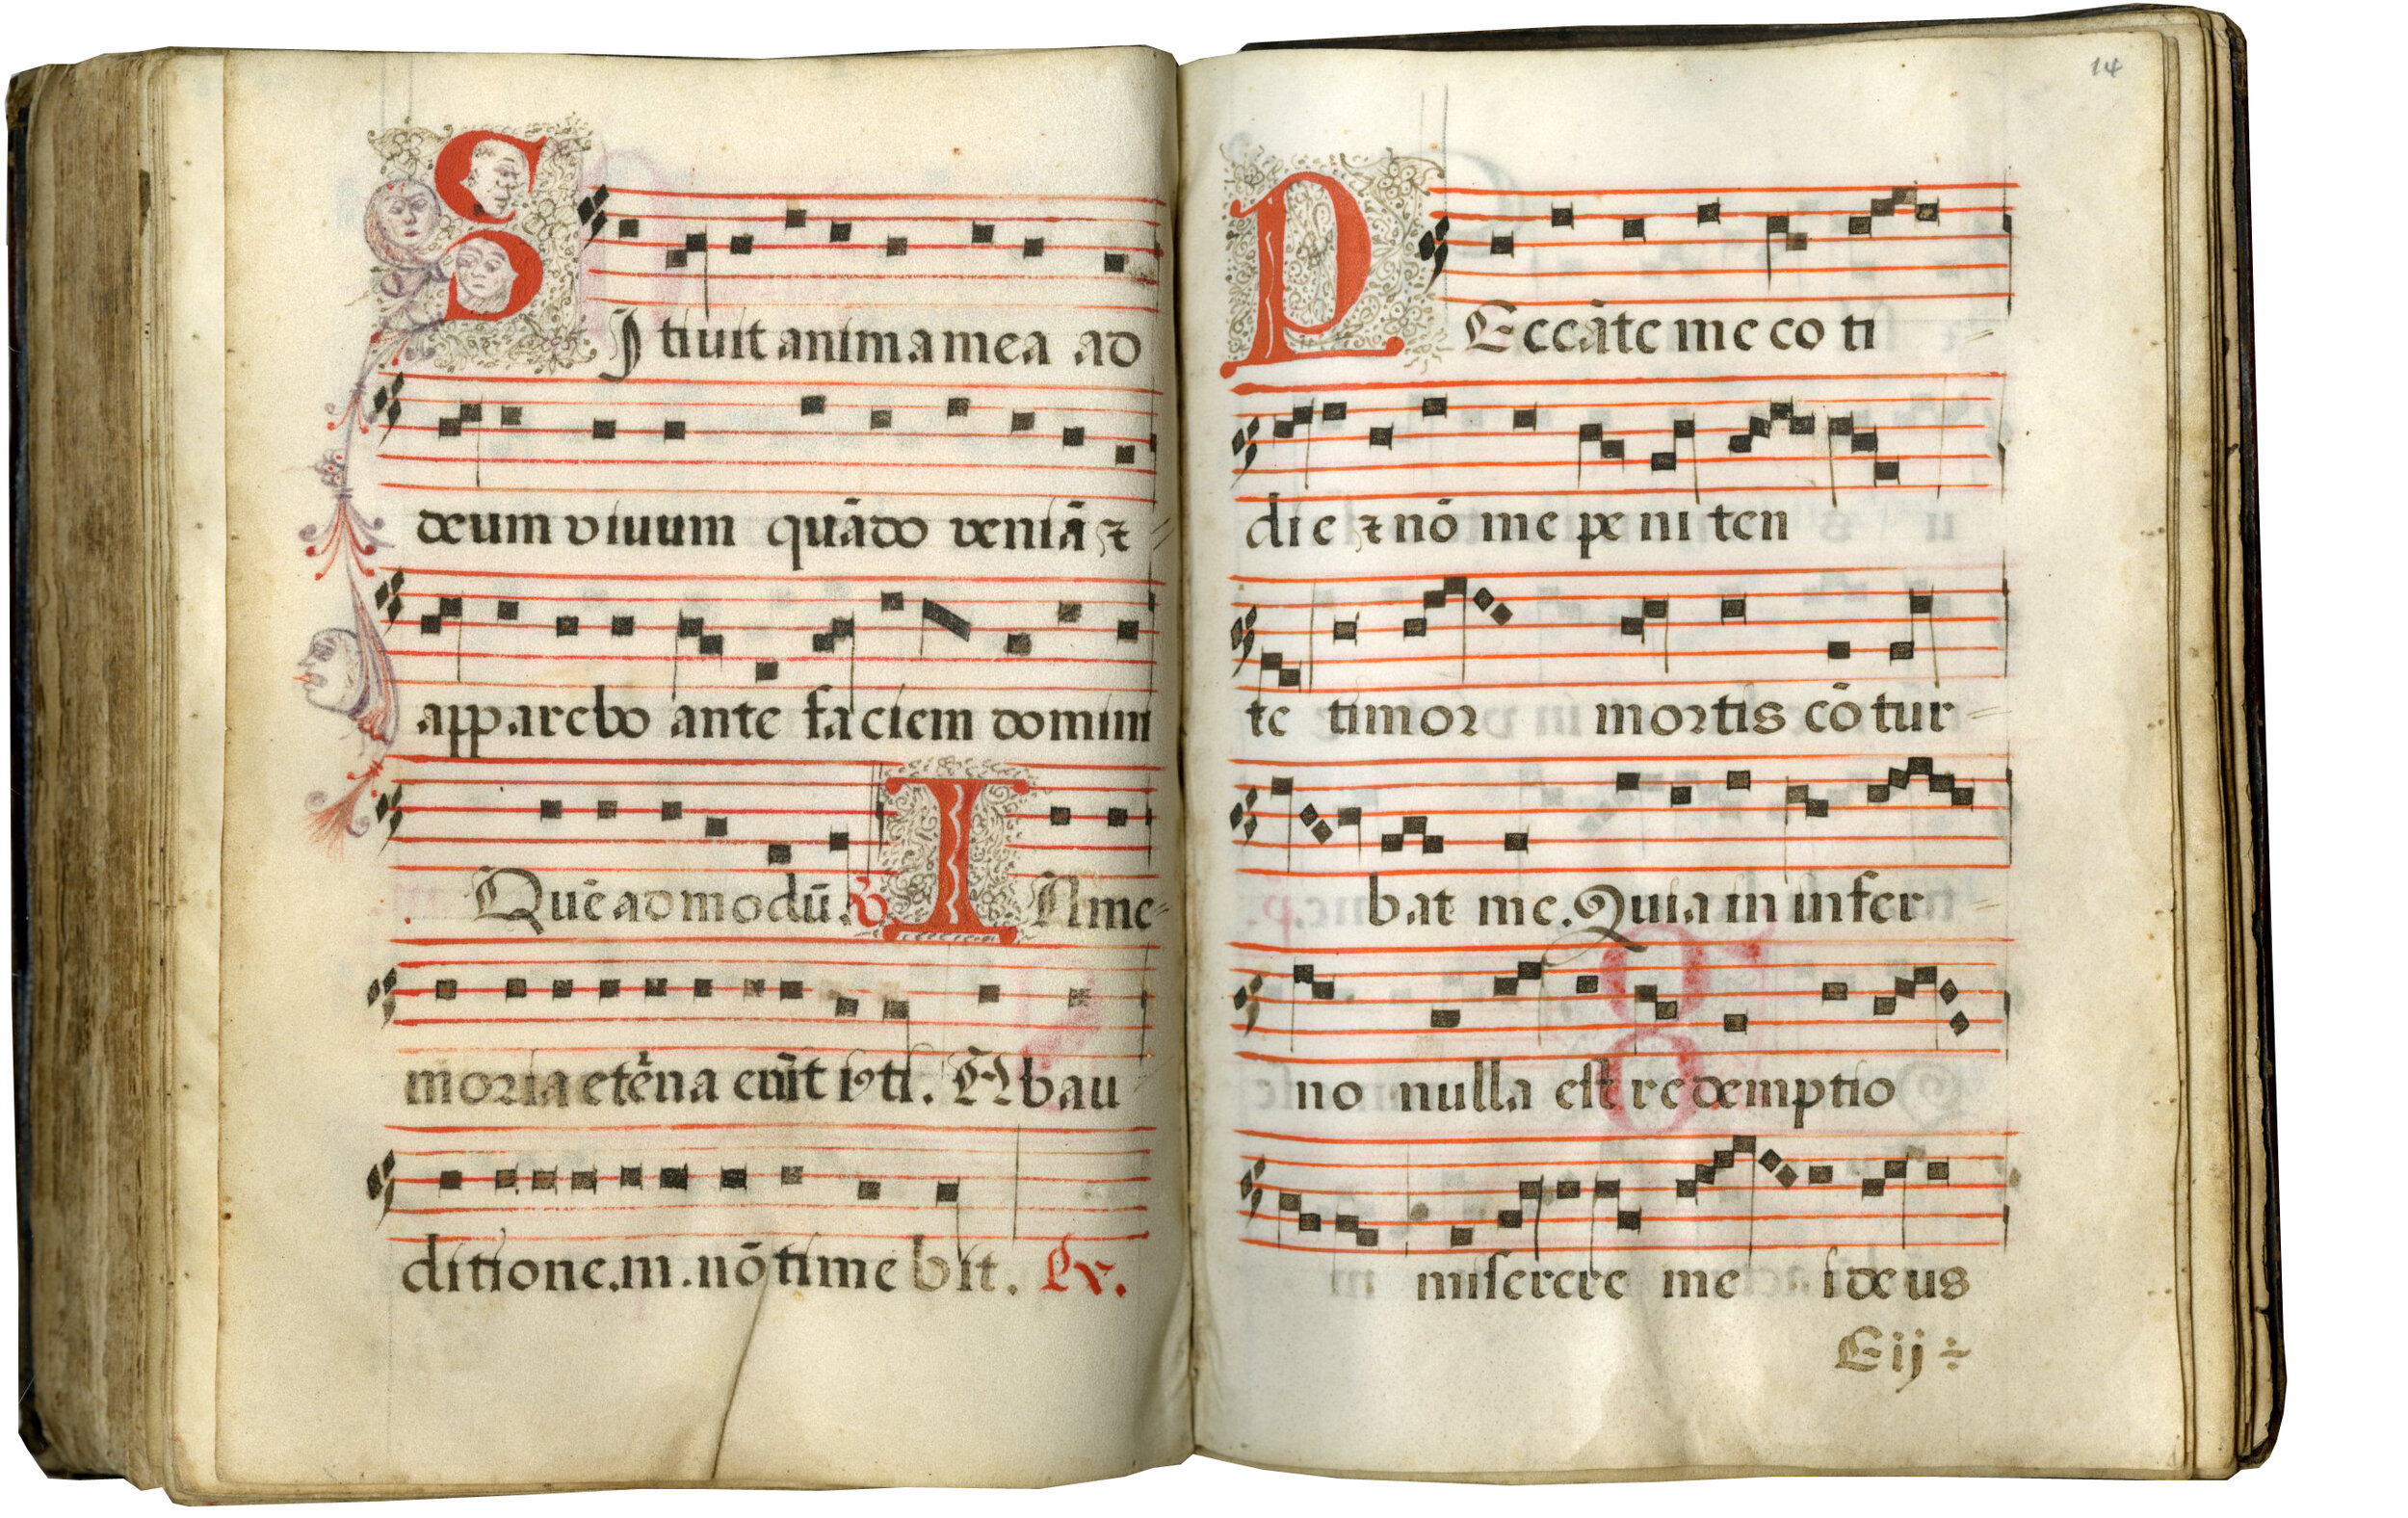 SJ tiuit anima mea ad
deum viuum quādo veniā ⁊
apparebo ante faciem domini
Quēadmodū. ℣ IN me-
moria etēna erūt iꝰti. Ab au
ditione.m.nō timebit. Lx.
14
PEccāte me coti
die ⁊ nō me peniten
te timor mortis cōtur
bat me. Quia in infer
no nulla est redemptio
miserere mei deus
Eij